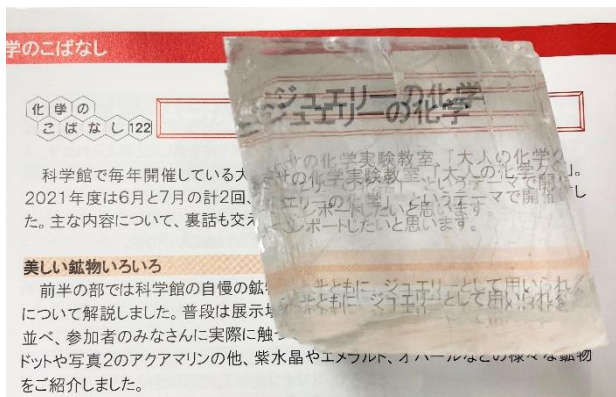 学のこばなし
化学の
こばなし122
ジュエリーの化学
科学館で毎年開催している大人の化学実験教室、「大人の化学クラブ」。
2021年度は6月と7月の計2回、「ジュエリーの化学」というテーマで開催し
た。主な内容について、裏話も交えレポートしたいと思います。
美しい鉱物いろいろ
前半の部では科学館の自慢の鉱物とともに、ジュエリーとして用いられる
について解説しました。普段は展示場
並べ、参加者のみなさんに実際に触っ
ドットや写真2のアクアマリンの他、紫水晶やエメラルド、オパールなどの様々な鉱物
をご紹介しました。